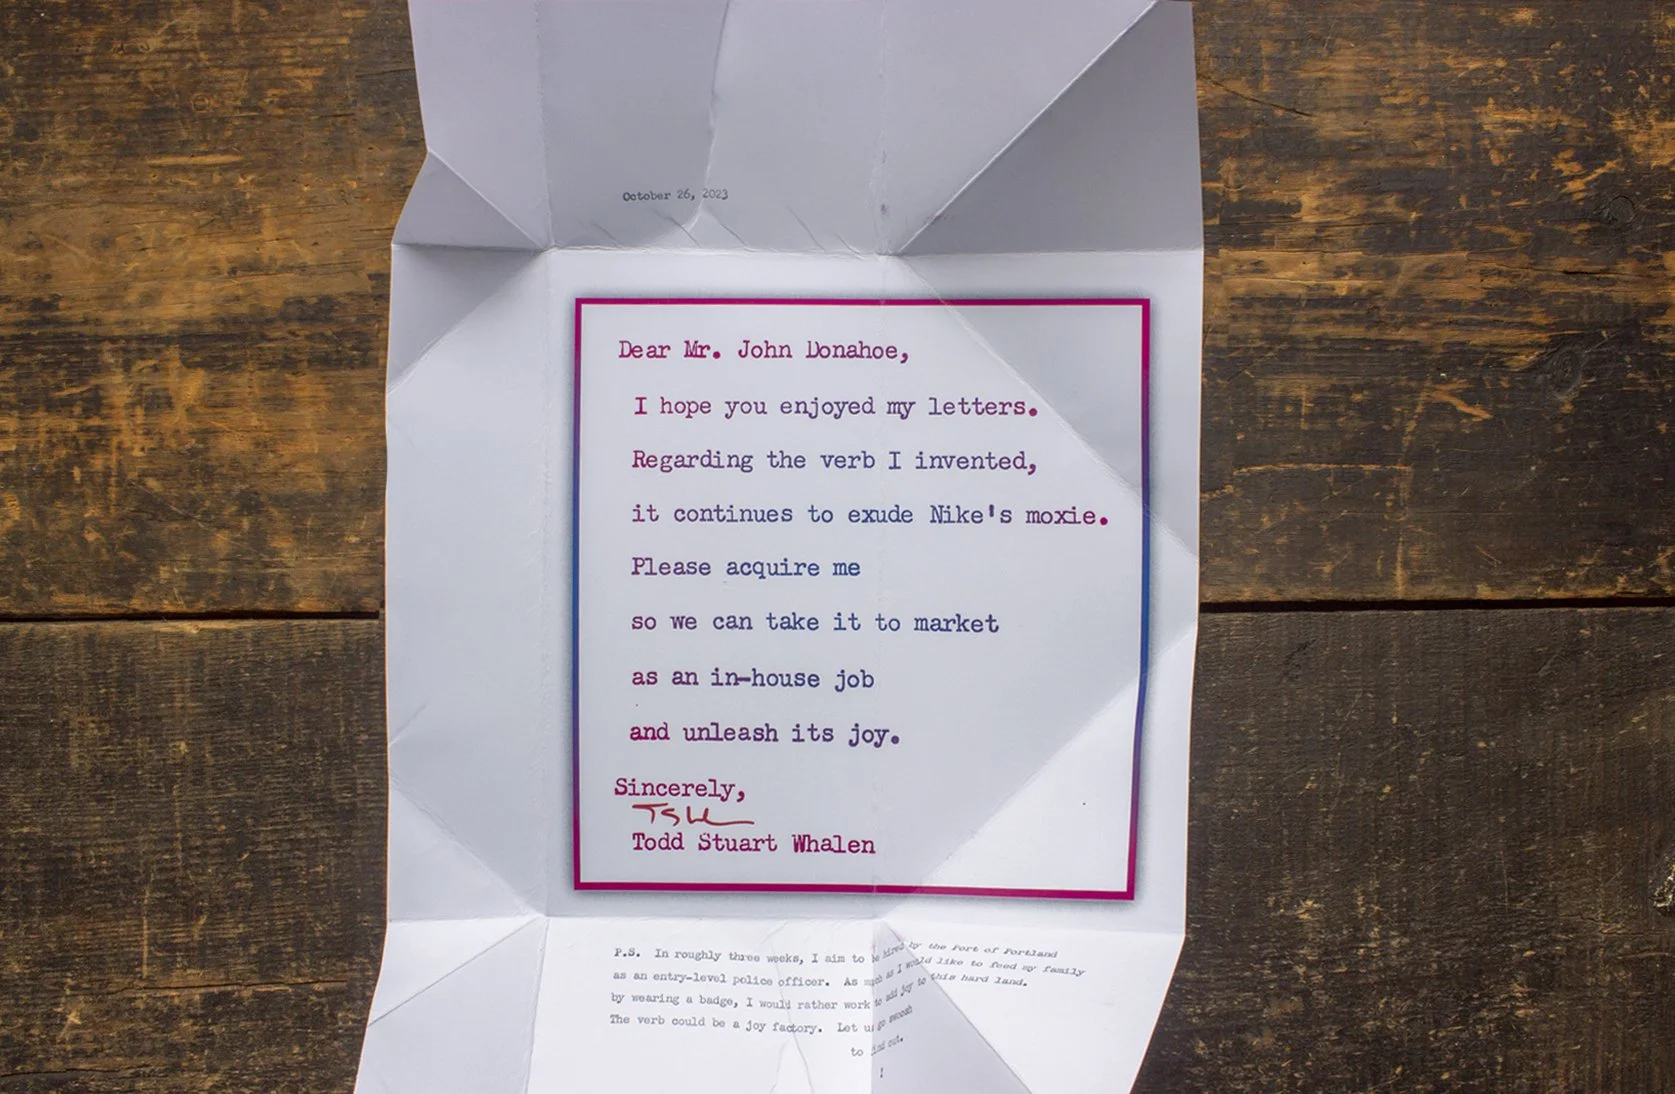 October 26, 2023
Dear Mr. John Donahoe,
I hope you enjoyed my letters.
Regarding the verb I invented,
it continues to exude Nike's moxie.
Please acquire me
so we can take it to market
as an in-house job
and unleash its joy.
Sincerely,
TSW
Todd Stuart Whalen
P.S. In roughly three weeks, I aim to be hired by the Port of Portland
as an entry-level police officer. As much as I would like to feed my family
by wearing a badge, I would rather work to add joy to this hard land.
The verb could be a joy factory. Let us go swoosh
to find out.
!